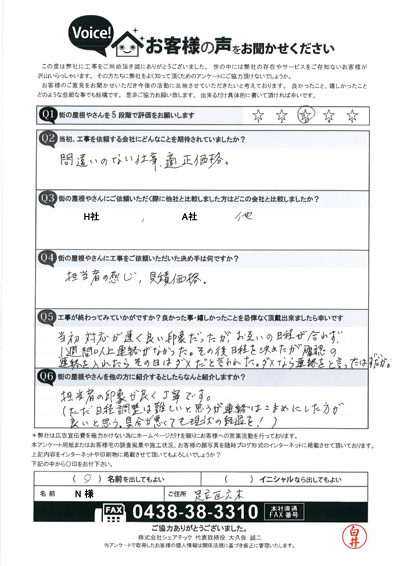 Voice!
お客様の声をお聞かせください
この度は弊社に工事をご用命頂き誠にありがとうございました。世の中には弊社の存在やサービスをご存知ないお客様が
沢山いらっしゃいます。その方たちに弊社をよく知って頂くためのアンケートにご協力頂けないでしょうか。
お客様のご意見をお聞かせいただき今後の活動に反映させていただきたいと考えております。良かったこと、嬉しかったこと
どのような些細な事でも結構です。是非ご協力お願い致します。出来るだけ具体的に書いて頂ければ幸いです。
Q1 街の屋根やさんを5段階で評価をお願いします
Q2 当初、工事を依頼する会社にどんなことを期待されていましたか？
間違いのない仕事、適正価格。
Q3 街の屋根やさんにご依頼いただく際に他社と比較しました方はどこの会社と比較しましたか？
H社 , A社 他
Q4 街の屋根やさんに工事をご依頼いただいた決め手は何ですか？
担当者の感じ、見積価格。
Q5 工事が終わってみていかがですか？良かった事・嬉しかったことを忌憚なく頂戴出来ましたら幸いです
当初 対応が速く良い印象だったが、お互いの日程が合わず、
1週間以上連絡がなかった。その後日程を決めたが確認の
連絡を入れたらその日はダメだと言われた。ダメなら連絡をと言ったはずだが。
Q6 街の屋根やさんを他の方に紹介するとしたらなんと紹介しますか？
担当者の印象が良く丁寧です。
(ただ日程調整は難しいと思うが連絡はこまめにした方が
良いと思う。具合が悪くても現状の報告を！)
＊弊社は広告宣伝費を極力かけない為にホームページだけを頼りにお客様への営業活動を行っております。
本アンケート用紙またはお客様宅の調査風景や施工状況、お客様の顔写真を随時ブログ形式のインターネットに掲載させて頂いております。
上記内容をインターネットや印刷物に掲載させて頂いてもよろしいでしょうか？
下記の中から〇印をお付下さい。
(〇) 名前を出してもよい ( ) イニシャルなら出してもよい
名前 N様 ご住所 足立区六木
FAX 0438-38-3310 本社直通FAX番号
ご協力ありがとうございました。
株式会社シェアテック 代表取締役 大久保 誠二
当アンケートで取得したお客様の個人情報は関係法規に基づき厳正に管理いたします。
白井